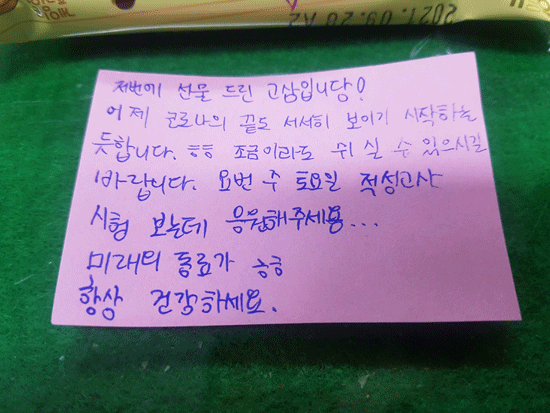 2021.09.20 A2
저번에 선물 드린 고삼입니당!
어제 코로나의 끝도 서서히 보이기 시작하는
듯합니다. ㅎㅎ 조금이라도 쉬실 수 있으시길
바랍니다. 요번 주 토요일 적성고사
시험 보는데 응원해주세용...
미래의 동료가 ㅎㅎ
항상 건강하세요.